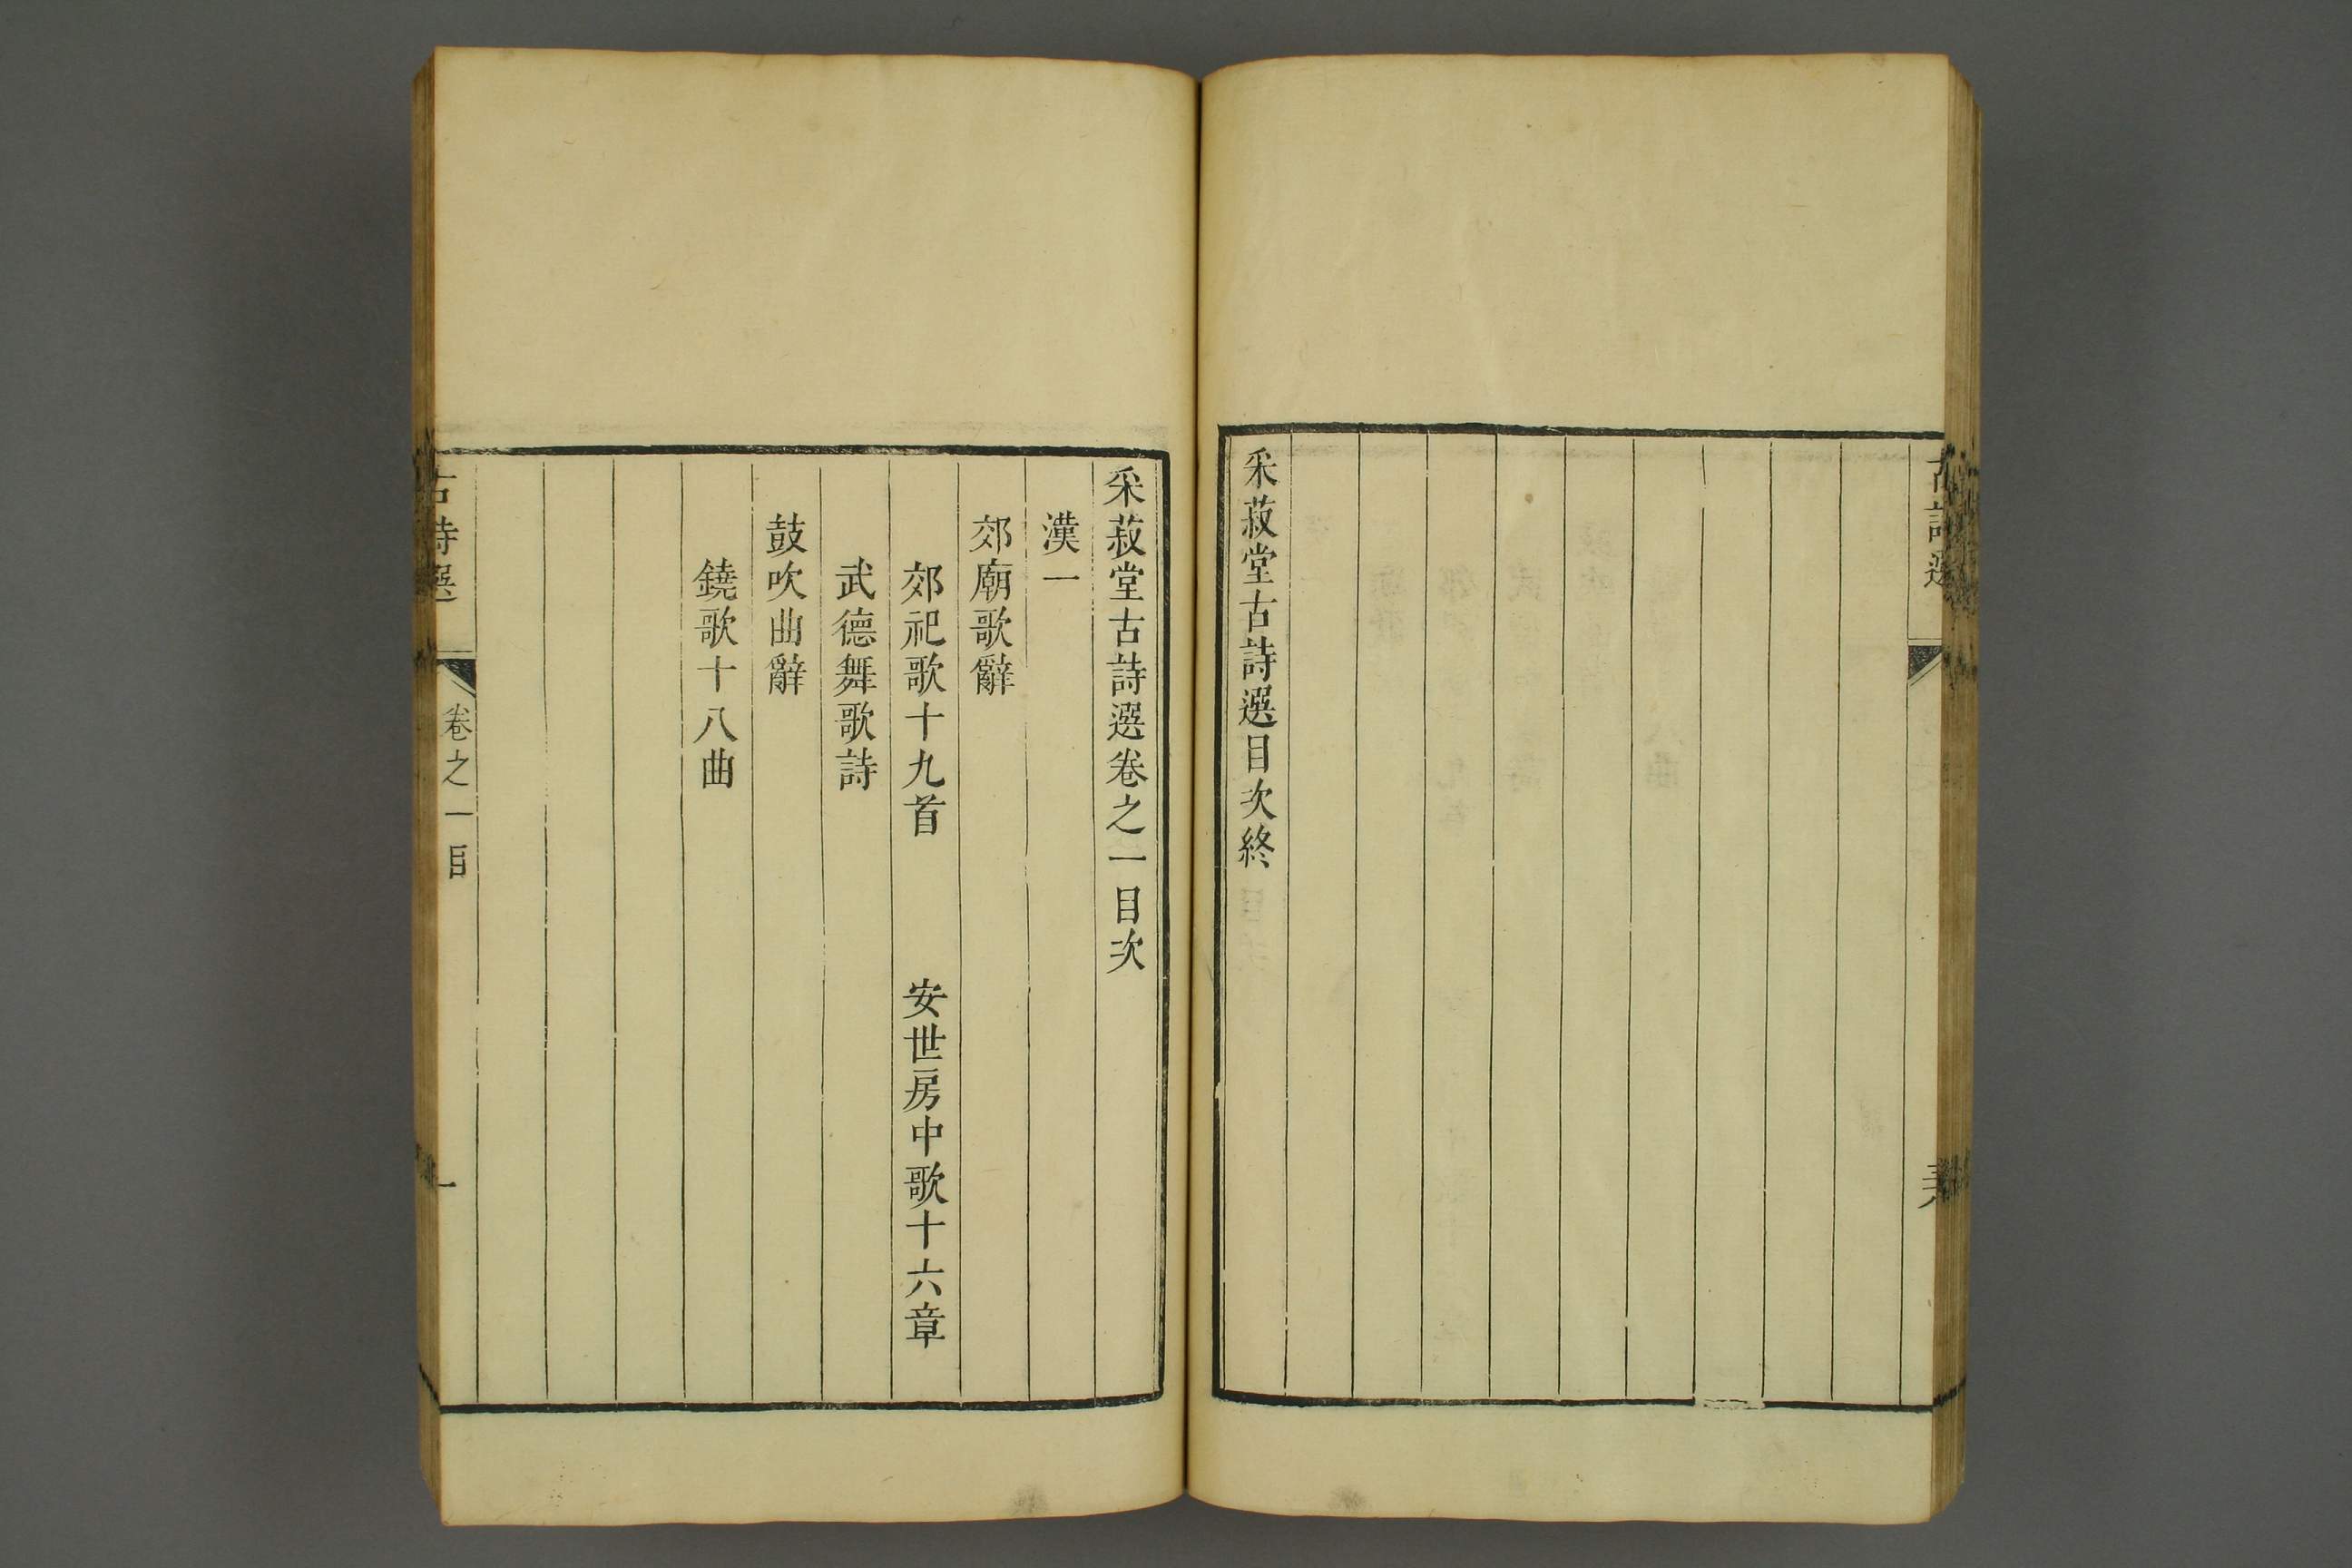 古詩選
采菽堂古詩選目次終
采菽堂古詩選卷之一目次
漢一
郊廟歌辭
郊祀歌十九首　安世房中歌十六章
武德舞歌詩
鼓吹曲辭
鐃歌十八曲
古詩選　卷之一目　一